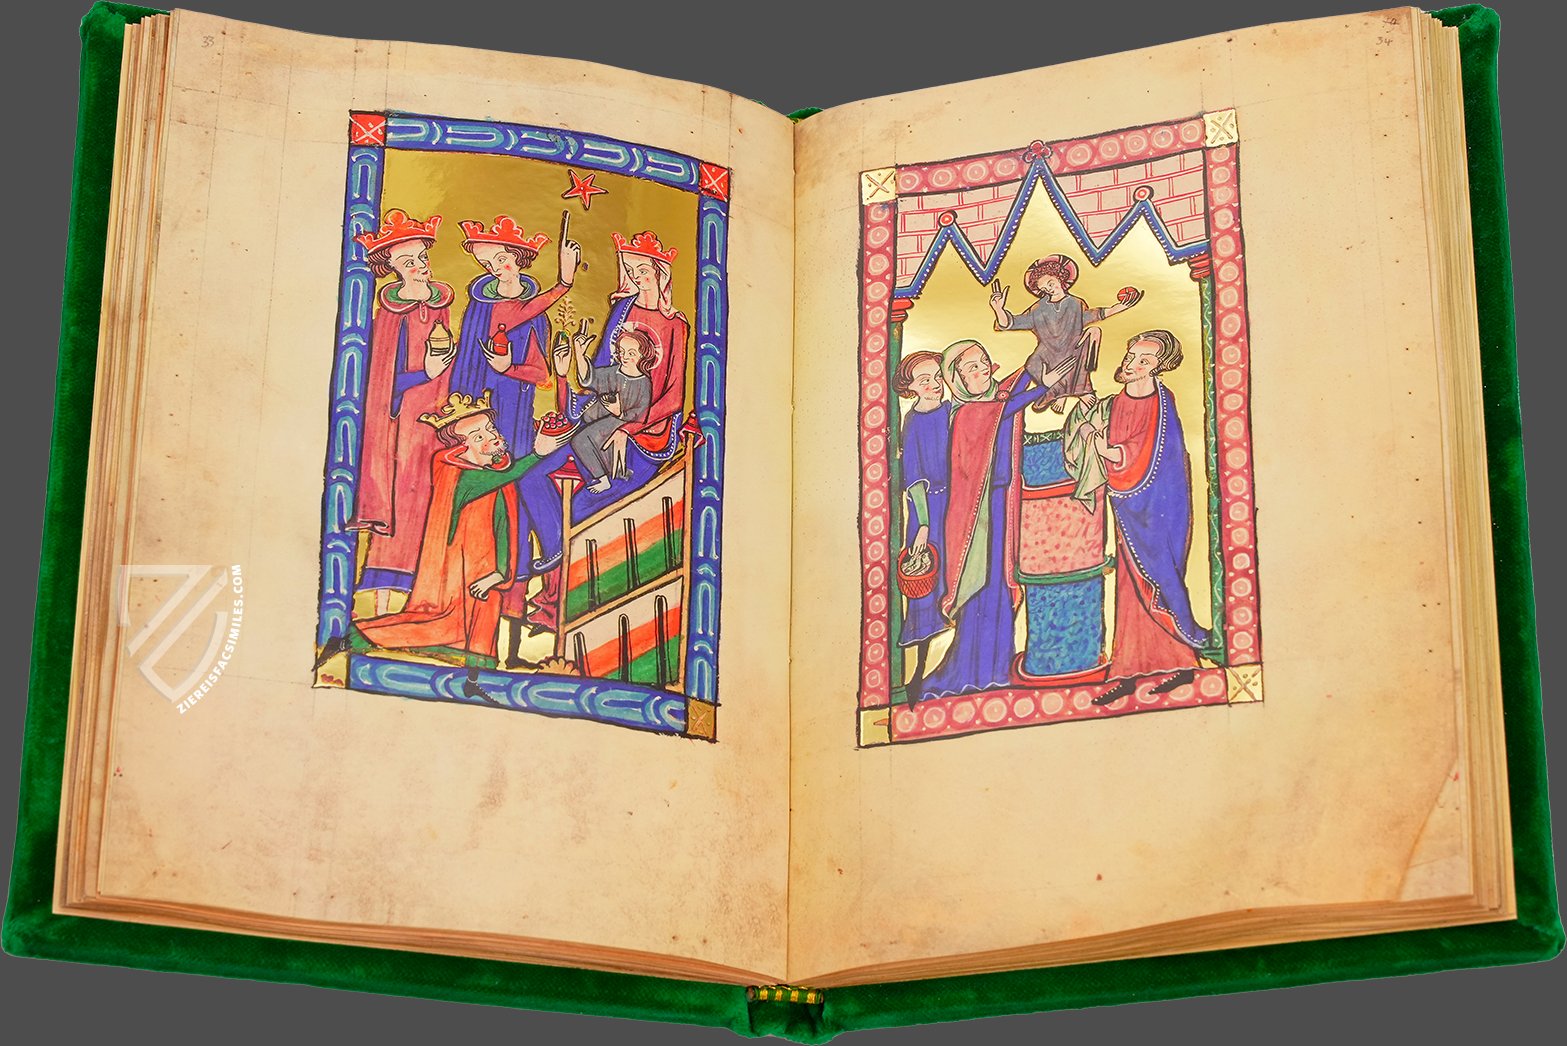 33
34
ZIEREISFACSIMILES.COM